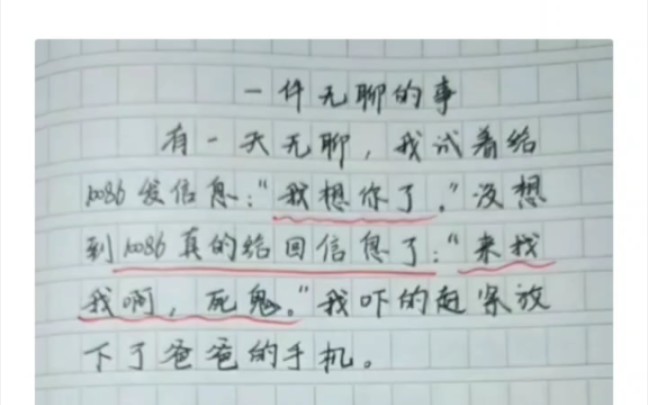 一件无聊的事
有一天无聊，我试着给
10086发信息：“我想你了。”没想
到10086真的给回信息了：“来找
我啊，死鬼。”我吓的赶紧放
下了爸爸的手机。